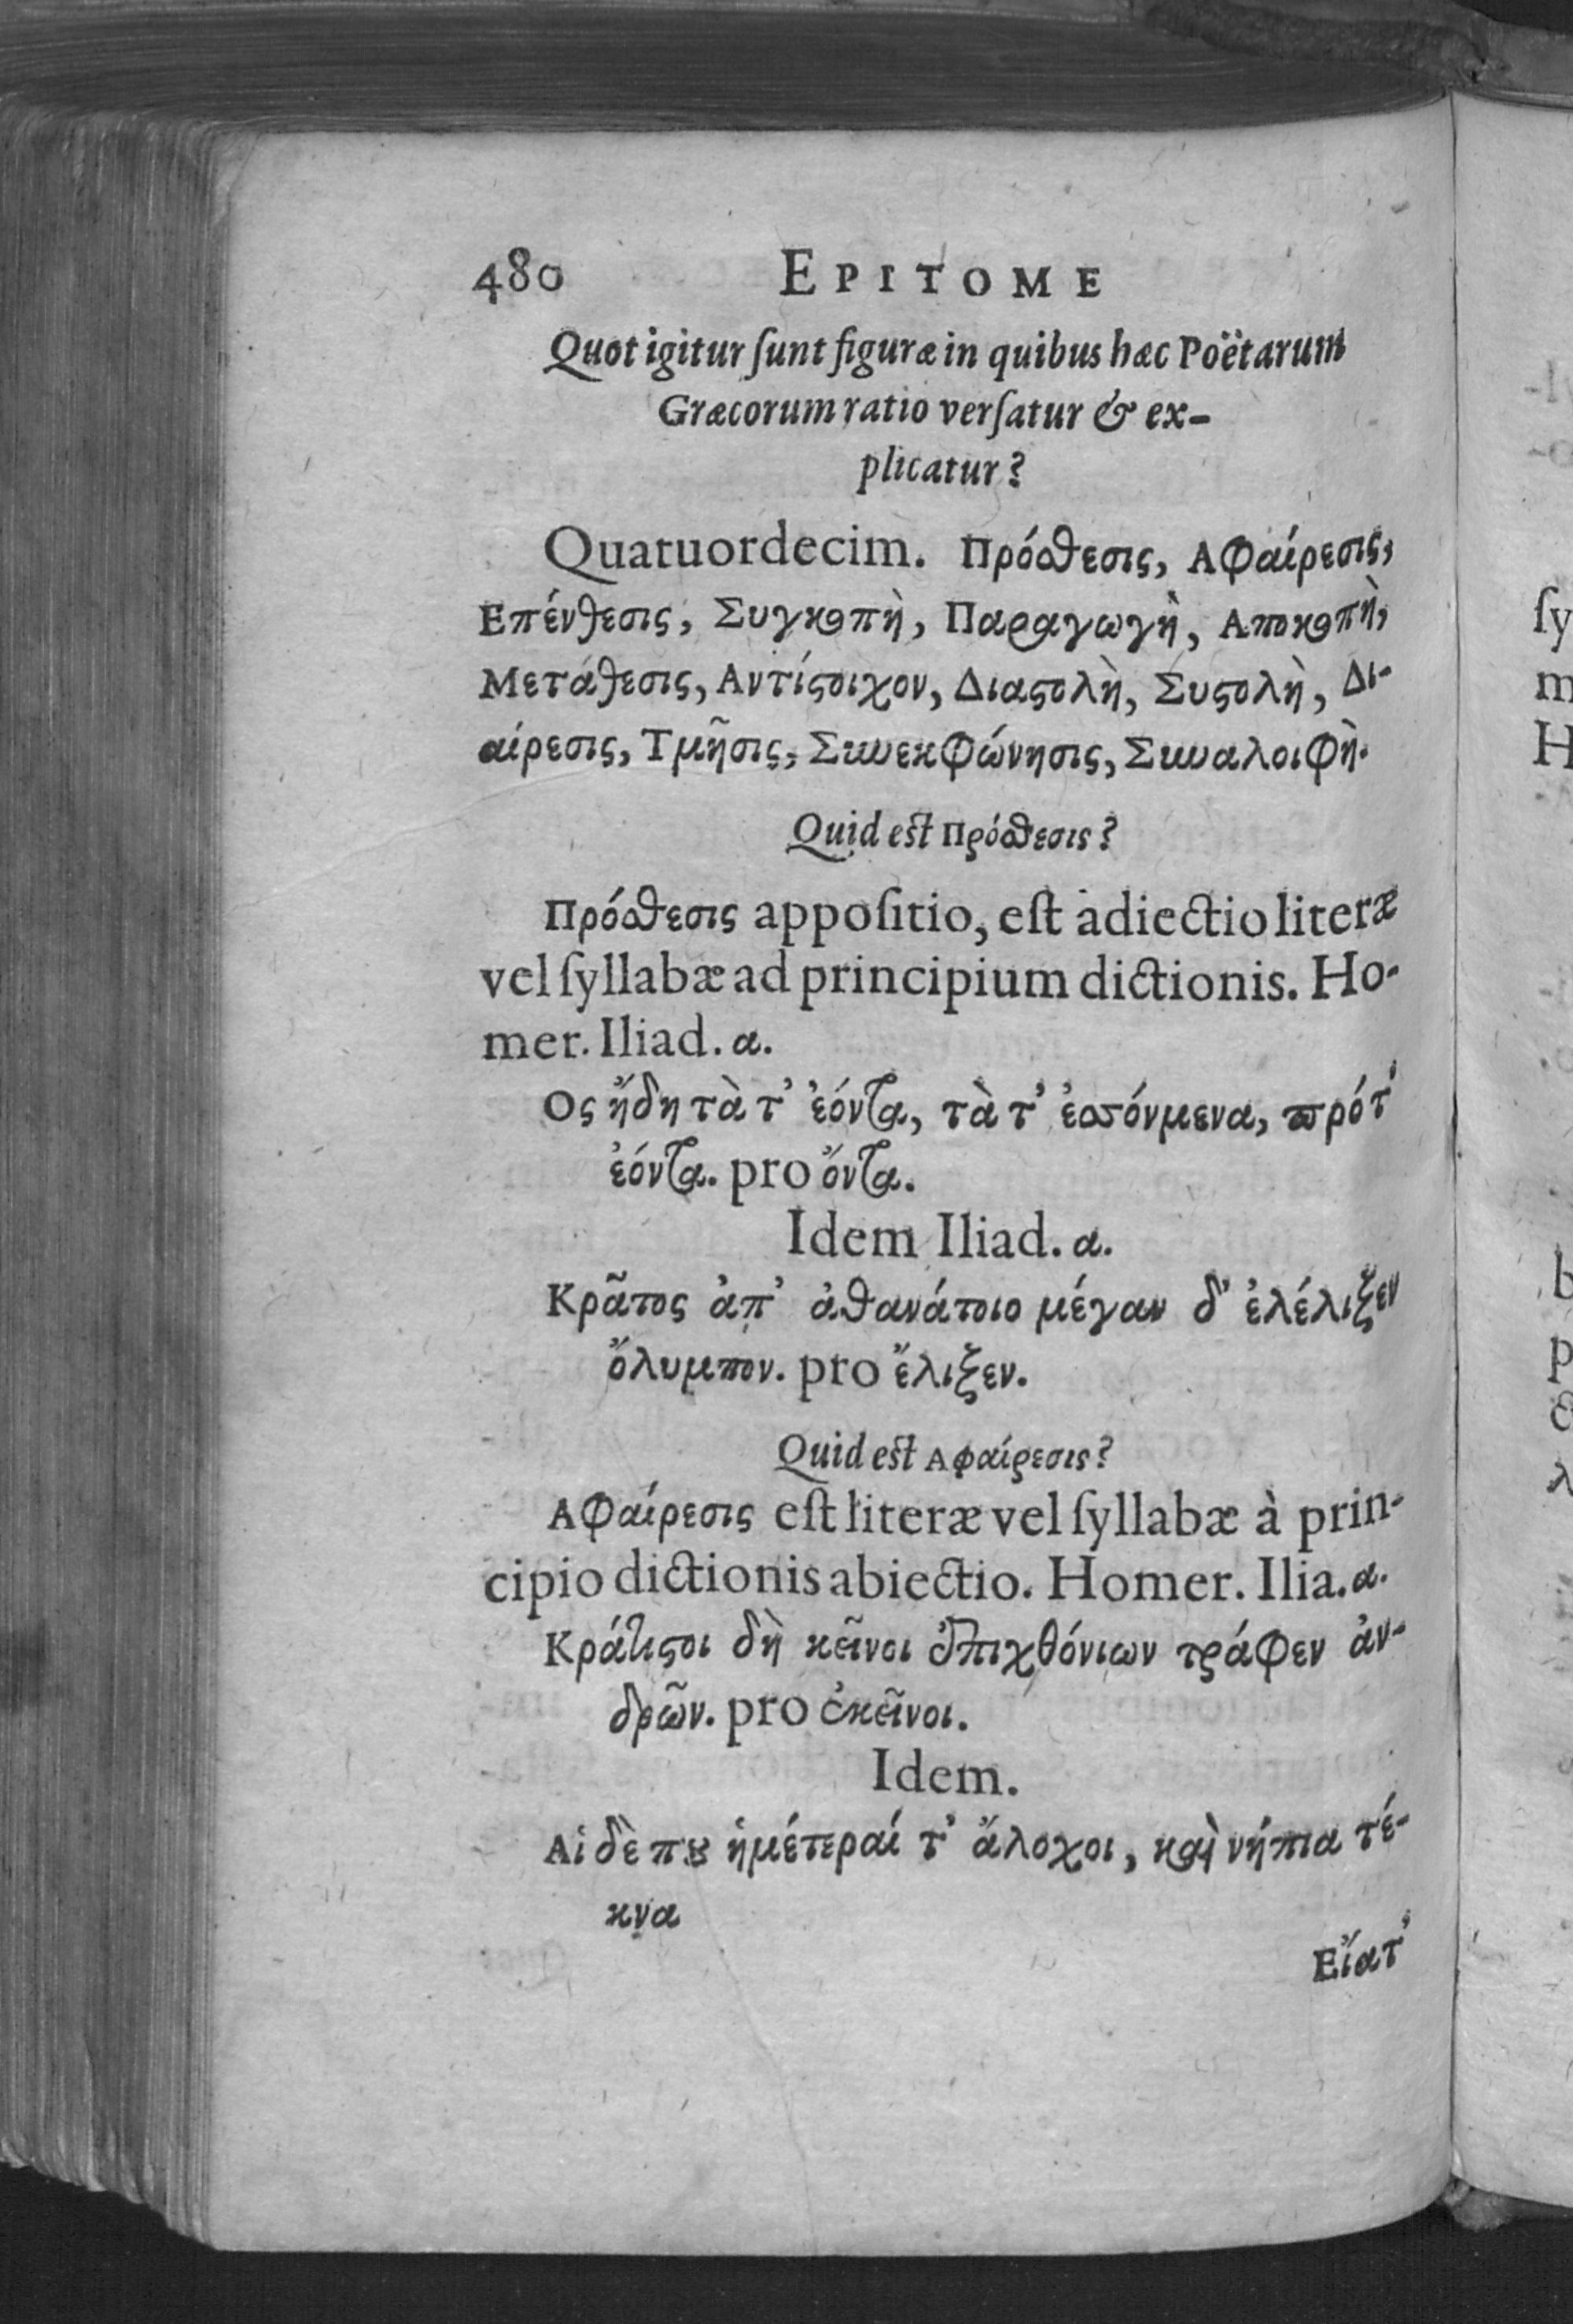 480 EPITOME
Quot igitur ſunt figuræ in quibus hæc Poëtarum
Græcorum ratio verſatur & ex-
plicatur?
Quatuordecim. Πρόσθεσις, Αφαίρεσις,
Επένθεσις, Συγκοπὴ, Παραγωγὴ, Αποκοπὴ,
Μετάθεσις, Αντίϛοιχον, Διαϛολὴ, Συϛολὴ, Δι-
αίρεσις, Τμῆσις, Συνεκφώνησις, Συναλοιφὴ.
Quid est Πρόσθεσις?
Πρόσθεσις appoſitio, eſt adiectio literæ
vel ſyllabæ ad principium dictionis. Ho-
mer. Iliad. α.
Ος ἤδη τὰ τ' ἐόντα, τὰ τ' ἐσσόνμενα, πρότ'
ἐόντα. pro ὄντα.
Idem Iliad. α.
Κρᾶτος ἀπ' ἀθανάτοιο μέγαν δ' ἐλέλιξεν
ὄλυμπον. pro ἔλιξεν.
Quid est Αφαίρεσις?
Αφαίρεσις eſt literæ vel ſyllabæ à prin-
cipio dictionis abiectio. Homer. Ilia. α.
Κράτιϛοι δὴ κεῖνοι ἐπιχθόνιων τράφεν ἀν-
δρῶν. pro ἐκεῖνοι.
Idem.
Αἱ δὲ πȣ ἡμέτεραί τ' ἄλοχοι, καὶ νήπια τέ-
κνα
Εἵατ'
ſy
m
H
b
p
λ